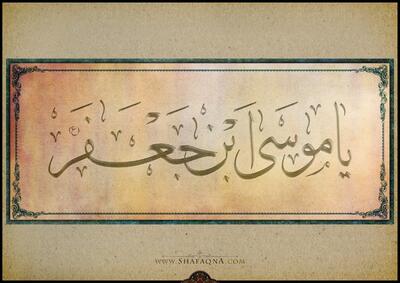 یا موسَی ابْن جَعْفَر ع
www.ShafaqnA.com